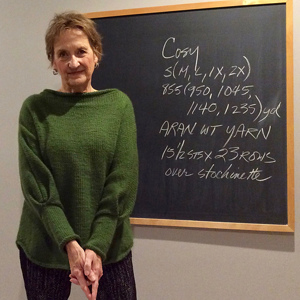 Cosy
S(M, L, 1X, 2X)
855(950, 1045,
1140, 1235)yd
ARAN WT YARN
15½ STS X 23 ROWS
over stockinette